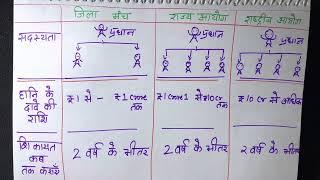 जिला मंच राज्य आयोग राष्ट्रीय आयोग
सदस्यता प्रधान प्रधान प्रधान
हानि के ₹1 से - ₹1 crore ₹1 crore1 से ₹10 cr ₹10 cr से अधिक
दावे की तक तक
राशि
शिकायत 2 वर्ष के भीतर 2 वर्ष के भीतर 2 वर्ष के भीतर
कब
तक करायें